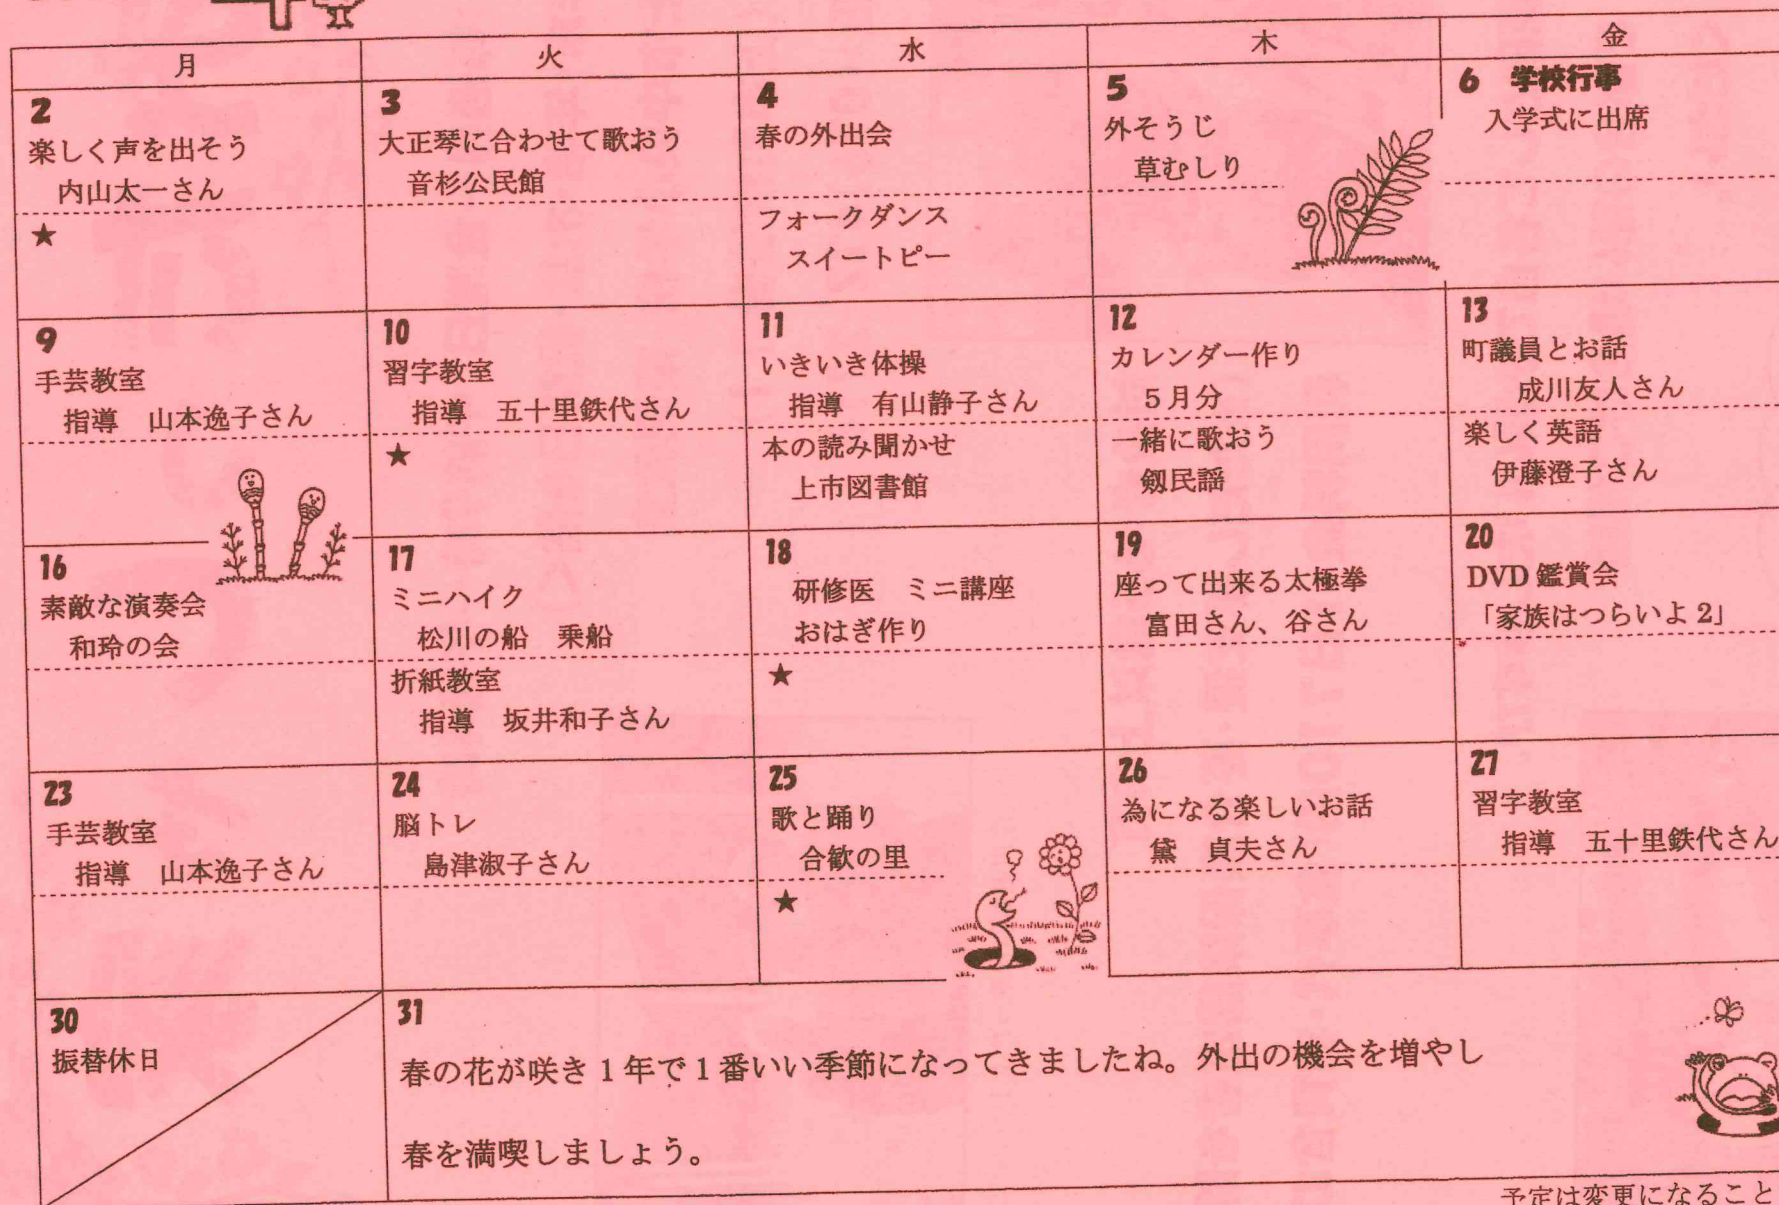 月 火 水 木 金
2
楽しく声を出そう
内山太一さん
★
3
大正琴に合わせて歌おう
音杉公民館
4
春の外出会
フォークダンス
スイートピー
5
外そうじ
草むしり
6 学校行事
入学式に出席
9
手芸教室
指導 山本逸子さん
10
習字教室
指導 五十里鉄代さん
★
11
いきいき体操
指導 有山静子さん
本の読み聞かせ
上市図書館
12
カレンダー作り
5月分
一緒に歌おう
剱民謡
13
町議員とお話
成川友人さん
楽しく英語
伊藤澄子さん
16
素敵な演奏会
和玲の会
17
ミニハイク
松川の船 乗船
折紙教室
指導 坂井和子さん
18
研修医 ミニ講座
おはぎ作り
★
19
座って出来る太極拳
富田さん、谷さん
20
DVD鑑賞会
「家族はつらいよ2」
23
手芸教室
指導 山本逸子さん
24
脳トレ
島津淑子さん
25
歌と踊り
合歓の里
★
26
為になる楽しいお話
黛 貞夫さん
27
習字教室
指導 五十里鉄代さん
30
振替休日
31
春の花が咲き1年で1番いい季節になってきましたね。外出の機会を増やし
春を満喫しましょう。
予定は変更になること